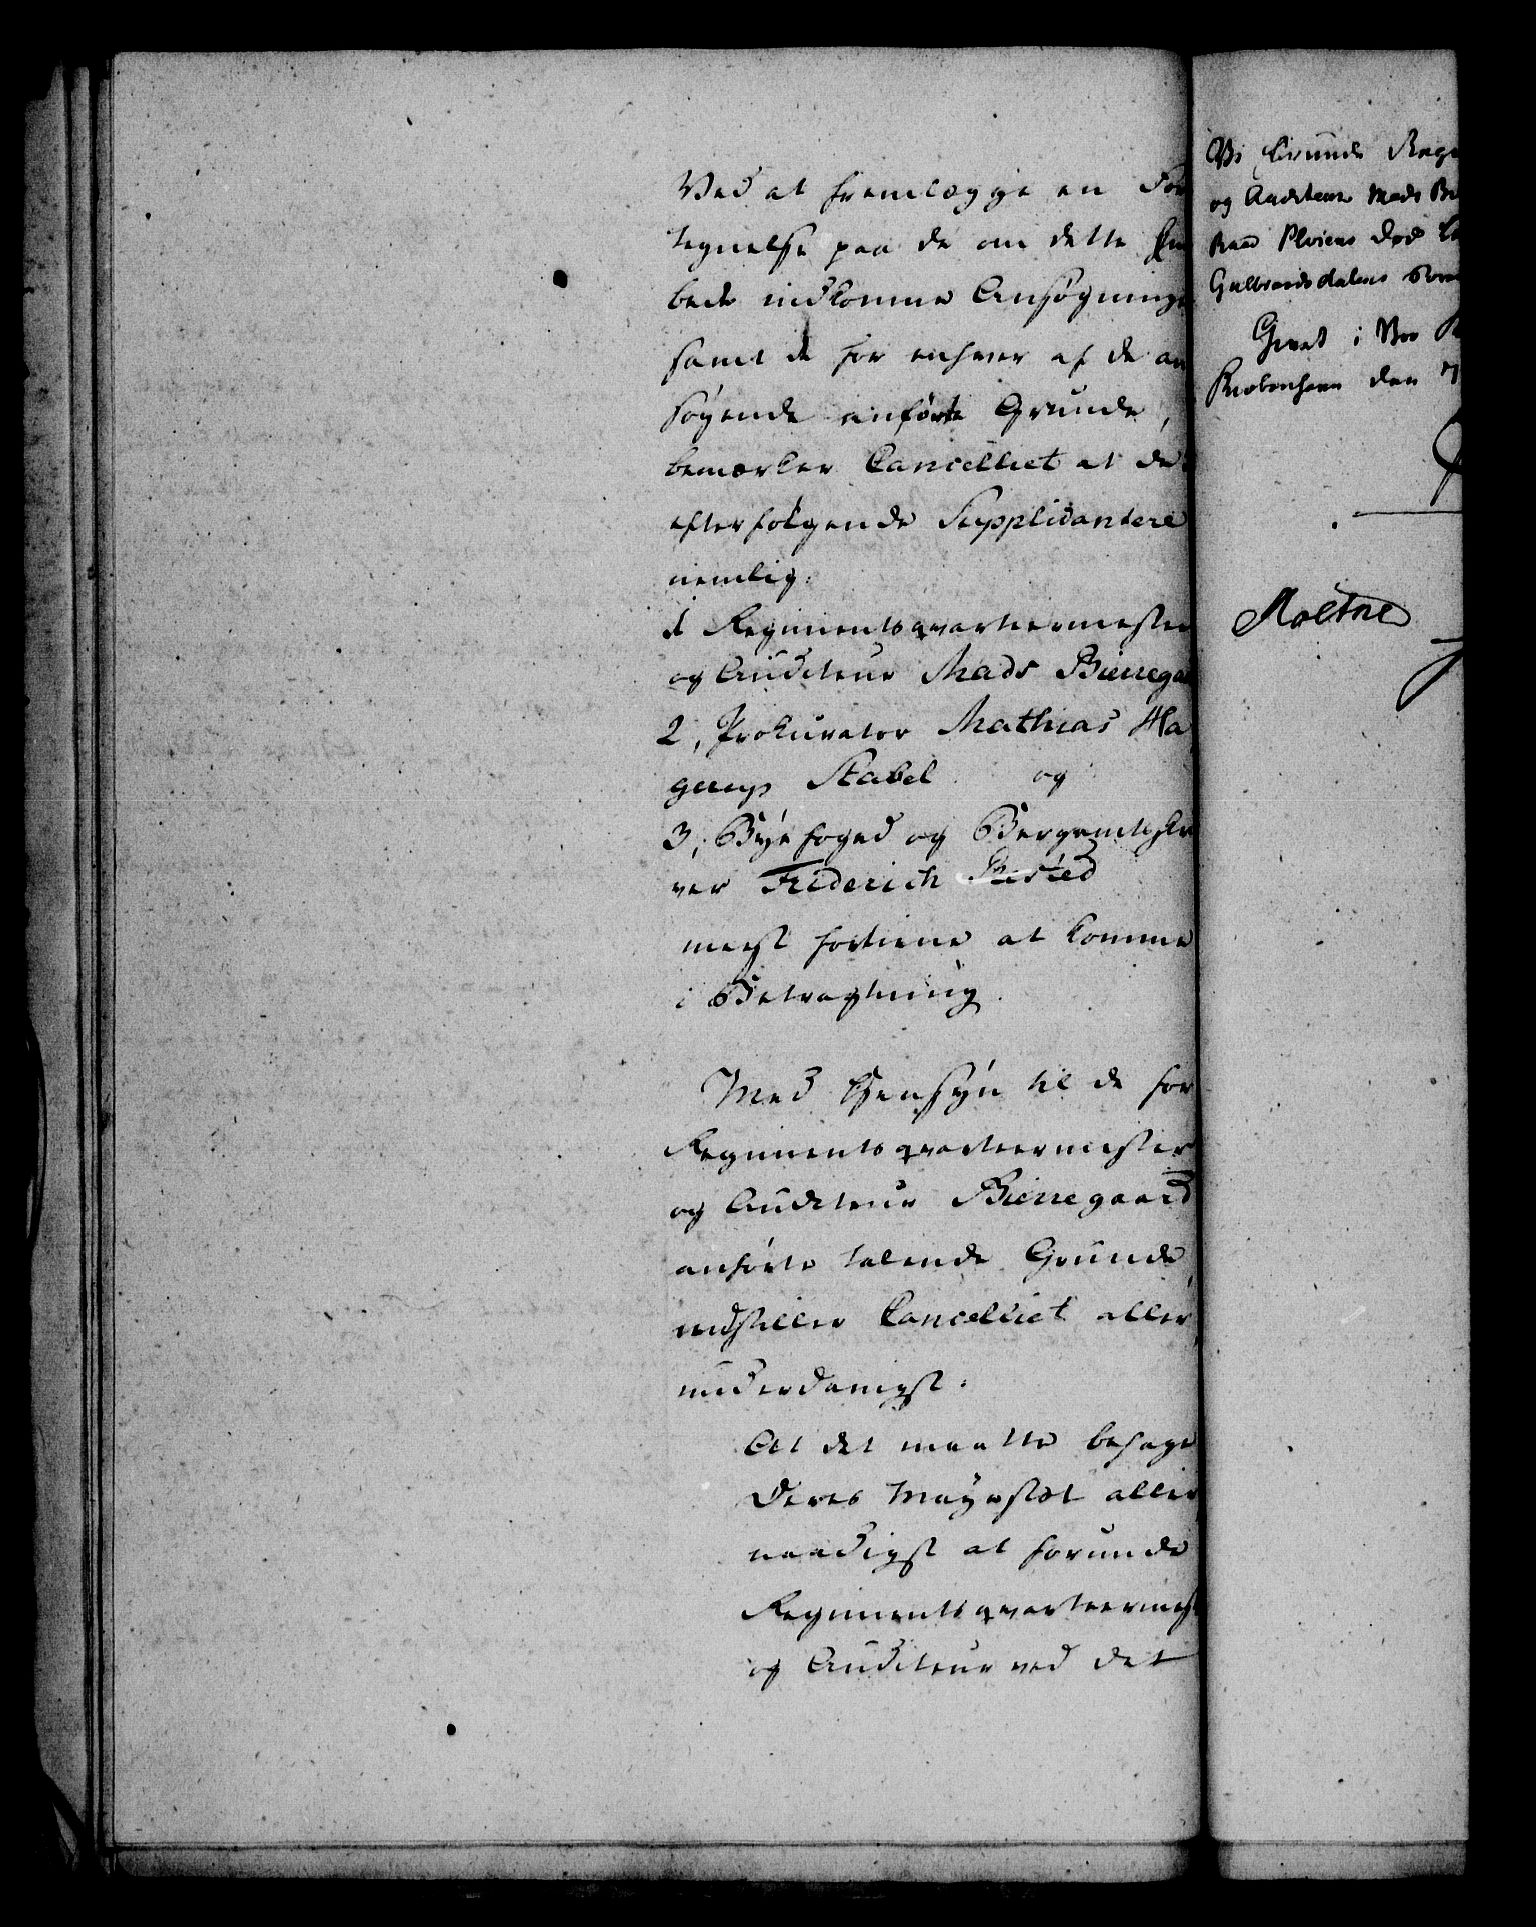 Ved at fremlægge en For
tegnelse paa de om dette Em
bede indkomne Ansøgninge
samt de for enhver af de an
søgende anførte Grunde,
bemærker Cancelliet at de
efterfølgende Supplicantere
nemlig:
1 Regimentsqvarteermester
og Auditeur Mads Bierregaa
2, Prokurator Mathias Ha
gerup Stabel og
3, Byefoged og Bergamtskri
ver Friderich
meest fortiene at komme
i Betragtning.
Med Hensyn til de for
Regimentsqvarteermester
og Auditeur Bierregaard
anførte talende Grunde,
indstiller Cancelliet aller
underdanigst:
At det maatte behage
Deres Mayestæt aller
naadigst at forunde
Regimentsqvarteermest
og Auditeur ved det
Vi forunde Reg
og Auditeur Mads Bi
Raad Pløiens død
Gulbrandsdalens Sore
Givet i Vor
Kiøbenhavn den 7
Moltke